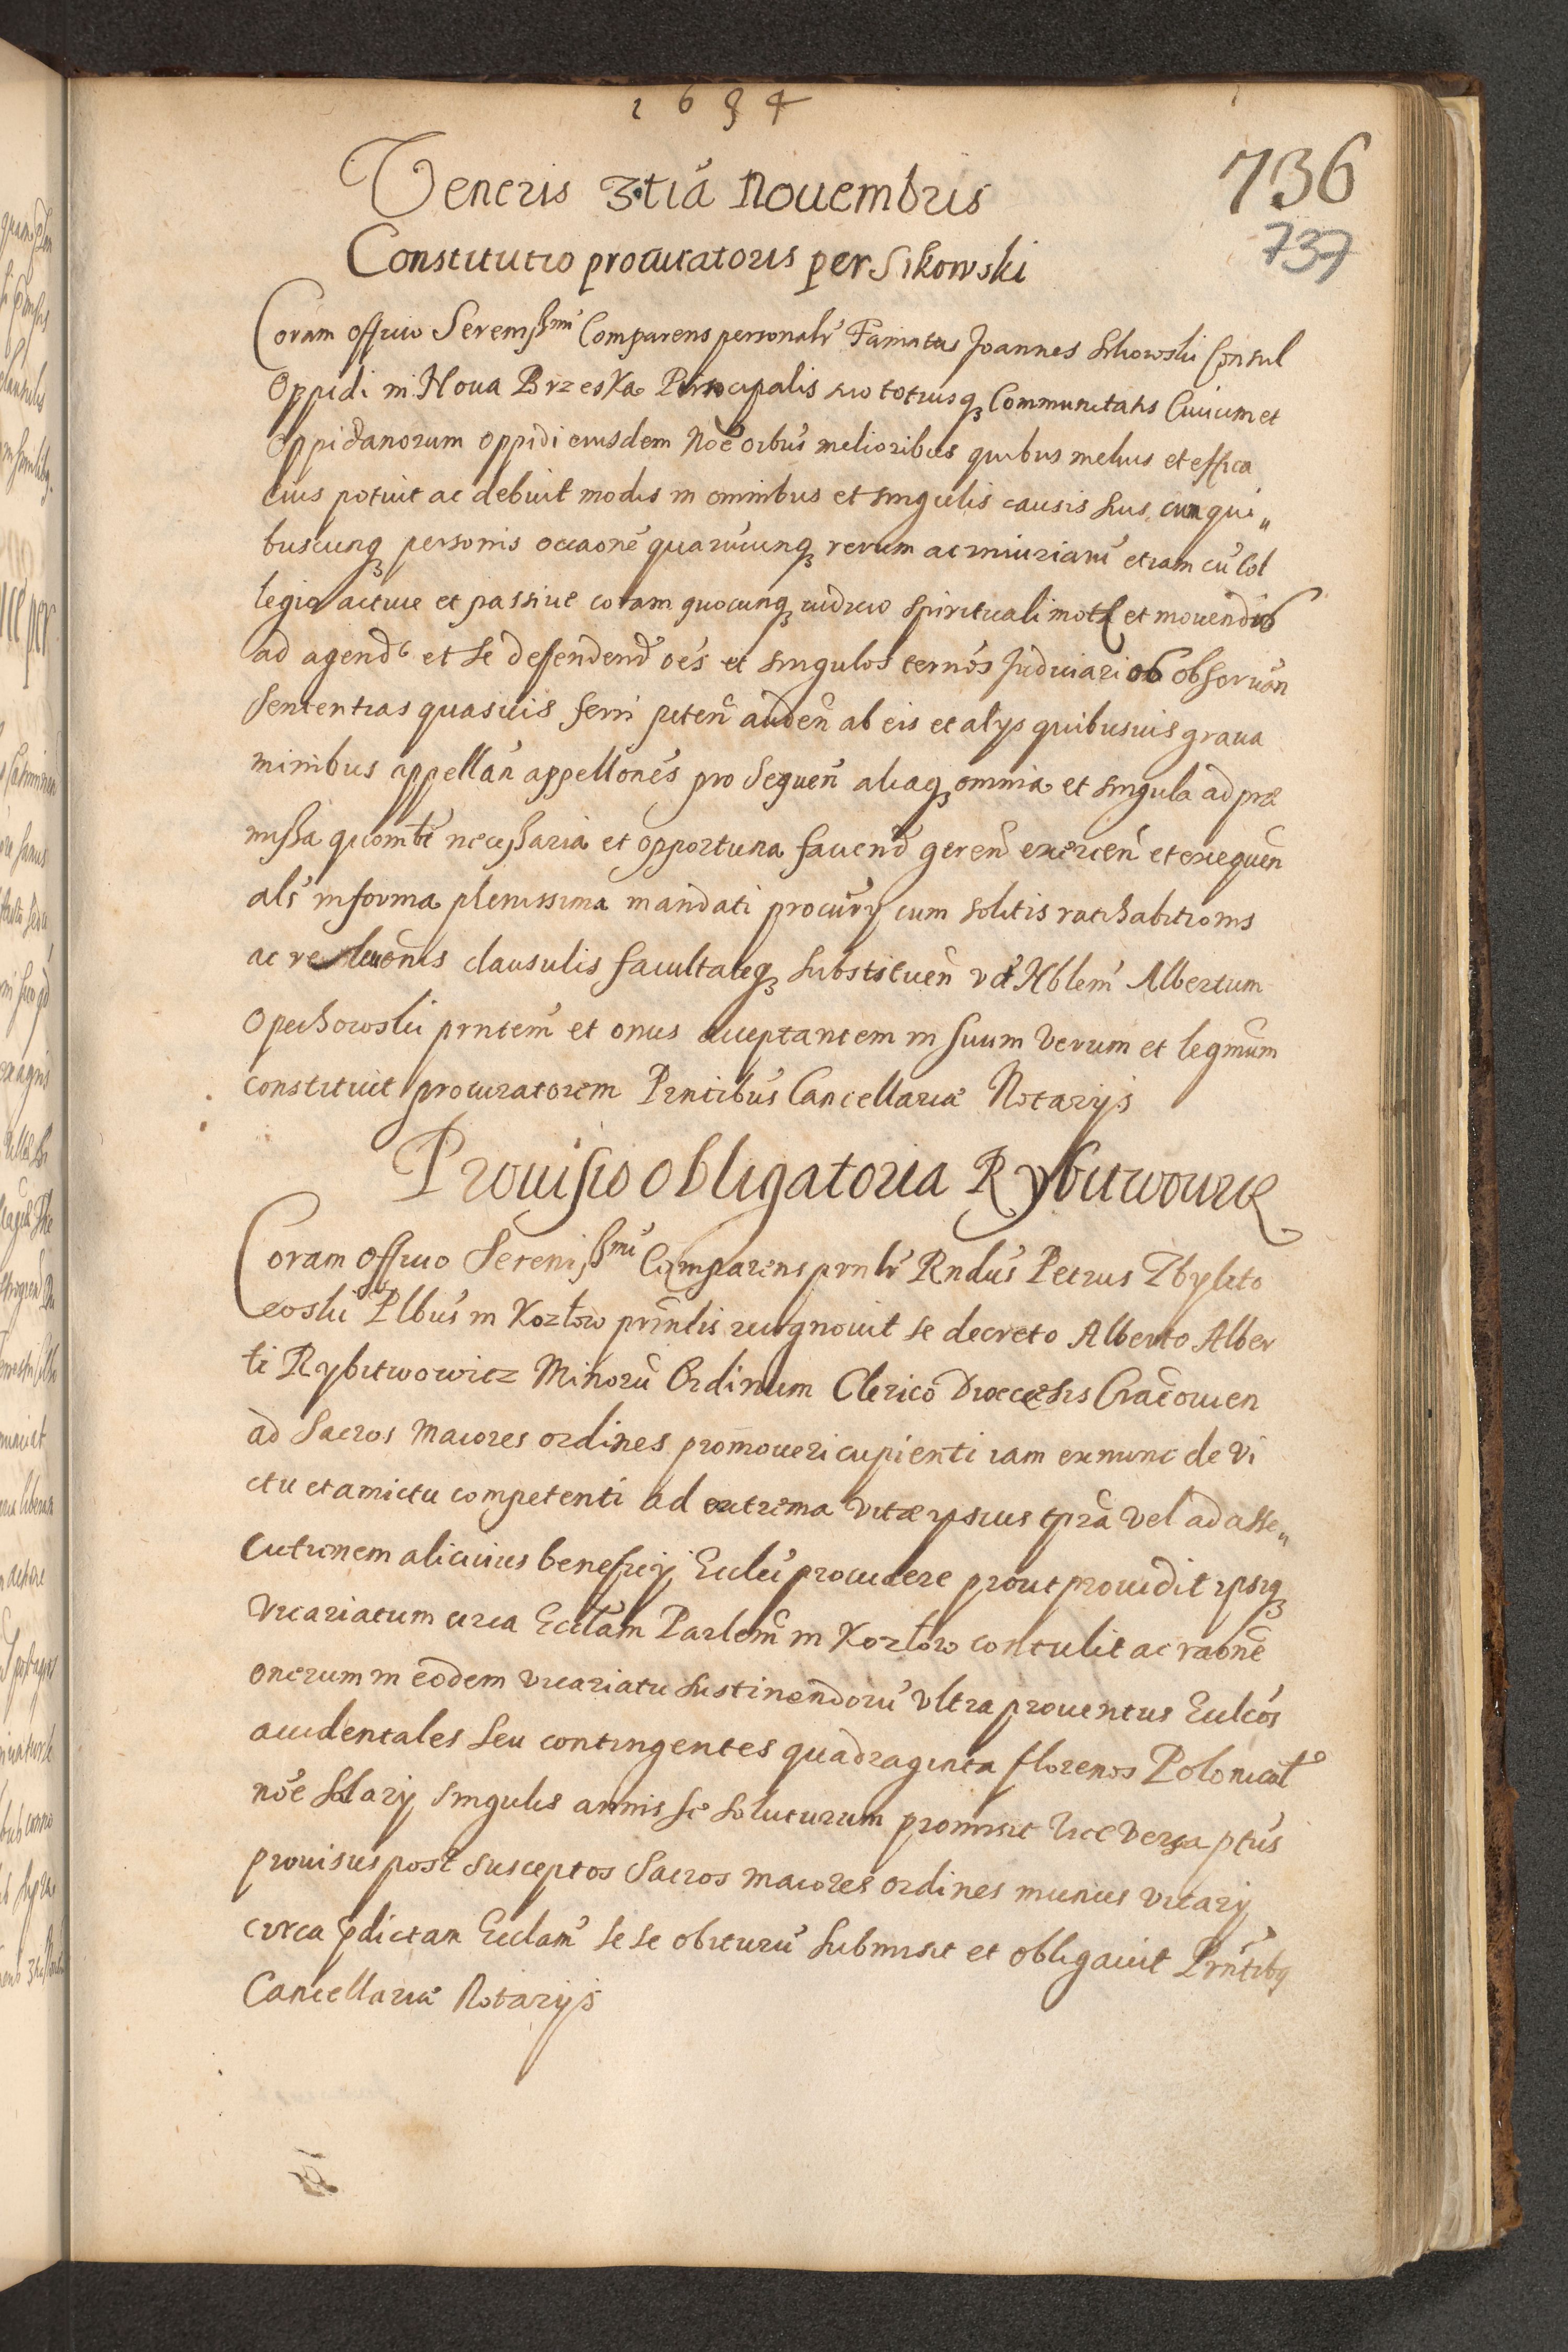 1634
736
Veneris 3.tia Nouembris
737
Constitutio procuratoris per Sikowski
Coram officio Sereniss̃mi Comparens personalr̃ Famatus Joannes Sikowski Consul
Oppidi in Noua Brzeska Principalis suo totiusq₃ Communitatis Ciuium et
Oppidanorum oppidi eiusdem Noẽ oĩbus melioribus quibus melius et effica
cius potuit ac debuit modis in omnibus et singulis causis suis cum qui„
buscunq₃ personis occaonẽ quarũcunq₃ rerum ac iniuriarũ etiam cũ Col
legio actiue et passiue coram quocunq₃ iudicio spirituali motis et mouendis
ad agend et se defendend oẽs et singulos terños Judiciarios obseruañ
sententias quasuis ferri peteñ audeñ ab eis et alijs quibusuis graua
minibus appellañ appellonẽs pro sequeñ aliaq₃ omnia et singula ad præ
missa quomlt̃ necessaria et opportuna faciend gereñ exerceñ et exequeñ
als̃ in forma plenissima mandati procurij cum solitis ratihabitionis
ac releuonis clausulis facultateq₃ substitueñ Nblem̃ Albertum
Opechowski prntem̃ et onus acceptantem in suum verum et legm̃um
constituit procuratorem Prntibus̃ Cancellariæ Notarijs
Prouisio obligatoria Rybitwowicz
Coram officio Sereniss̃mi Comparens prnlr̃ Rndus̃ Petrus Zbylito
woski Plbus̃ in Kozłow princ̃lis recognouit se decreto Alberto Alber
ti Rybitwowicz Minorũ Ordinum Clerico Diœcesis Cracouien
ad Sacros maiores ordines promoueri cupienti iam ex nunc de vi
ctu et amictu competenti ad extrema vitæ ipsius tp̃ra vel ad asse„
cutionem alicuius beneficij Eccleĩ prouidere prout prouidit ipsiq₃
Vicariatum circa Eccłam̃ Parlem̃ in Kozłow contulit ac raonẽ
onerum in eodem vicariatu sustinendorũ vltra prouentus Ecclcos̃
accidentales seu contingentes quadraginta florenos Polonicat
noẽ Salarij singulis annis se soluturum promisit Vice versa ptus̃
prouisus post susceptos Sacros maiores ordines munus vicarij
circa p̃dictam Ecclam̃ se se obiturũ submisit et obligauit Prñtibq
Cancellariæ Notarijs